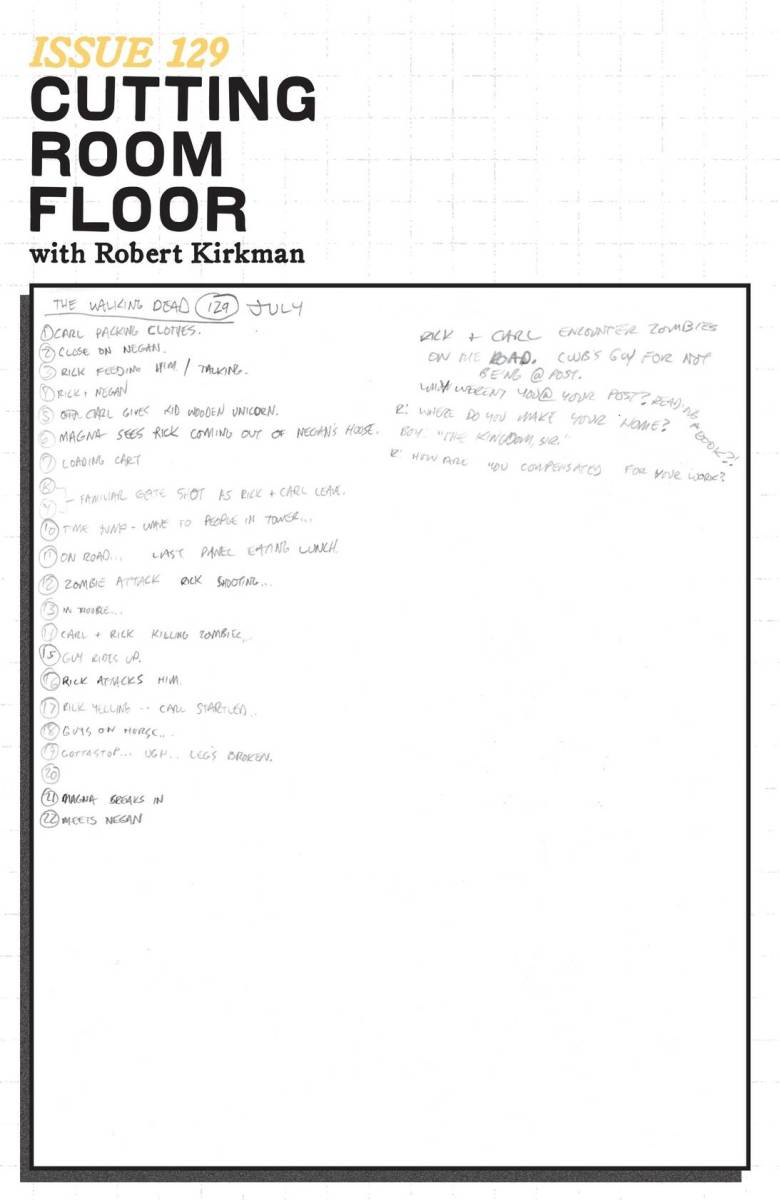 ISSUE 129
CUTTING
ROOM
FLOOR
with Robert Kirkman
THE WALKING DEAD 129 JULY
1 CARL PACKING CLOTHES.
2 CLOSE ON NEGAN.
3 RICK FEEDING HIM / TALKING.
4 RICK + NEGAN
5 CARL GIVES KID WOODEN UNICORN.
6 MAGNA SEES RICK COMING OUT OF NEGAN'S HOUSE.
7 LOADING CART
8
9 - FAMILIAR GATE SHOT AS RICK + CARL LEAVE.
10 TIME JUMP - WAVE TO PEOPLE IN TOWER...
11 ON ROAD... LAST PANEL EATING LUNCH.
12 ZOMBIE ATTACK RICK SHOOTING...
13 IN TROUBLE...
14 CARL + RICK KILLING ZOMBIES..
15 GUY RIDES UP.
16 RICK ATTACKS HIM.
17 RICK YELLING -- CARL STARTLED..
18 GUYS ON HORSE...
19 GOTTA STOP... UGH.. LEG'S BROKEN.
20
21 MAGNA BREAKS IN
22 MEETS NEGAN
RICK + CARL ENCOUNTER ZOMBIES
ON THE ROAD. GUY FOR NOT
BEING @ POST.
WHY WEREN'T YOU @ YOUR POST? READING A BOOK?!
R: WHERE DO YOU MAKE YOUR HOME?
BOY: "THE KINGDOM, SIR."
R: HOW ARE YOU COMPENSATED FOR YOUR WORK?